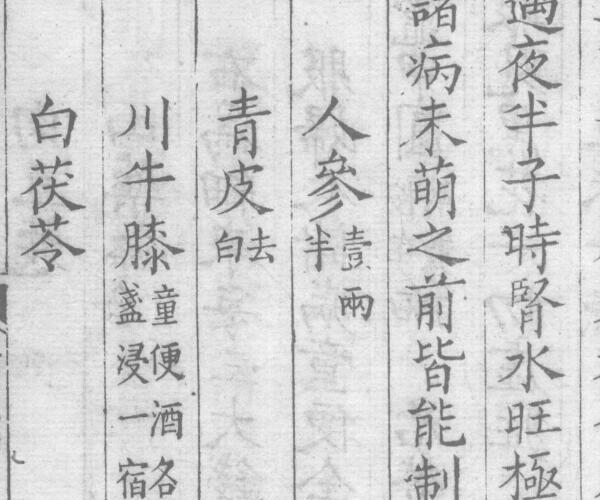 遇夜半子時腎水旺極
諸病未萌之前皆能制
人參壹兩半
青皮去白
川牛膝童便酒各盞浸一宿
白茯苓